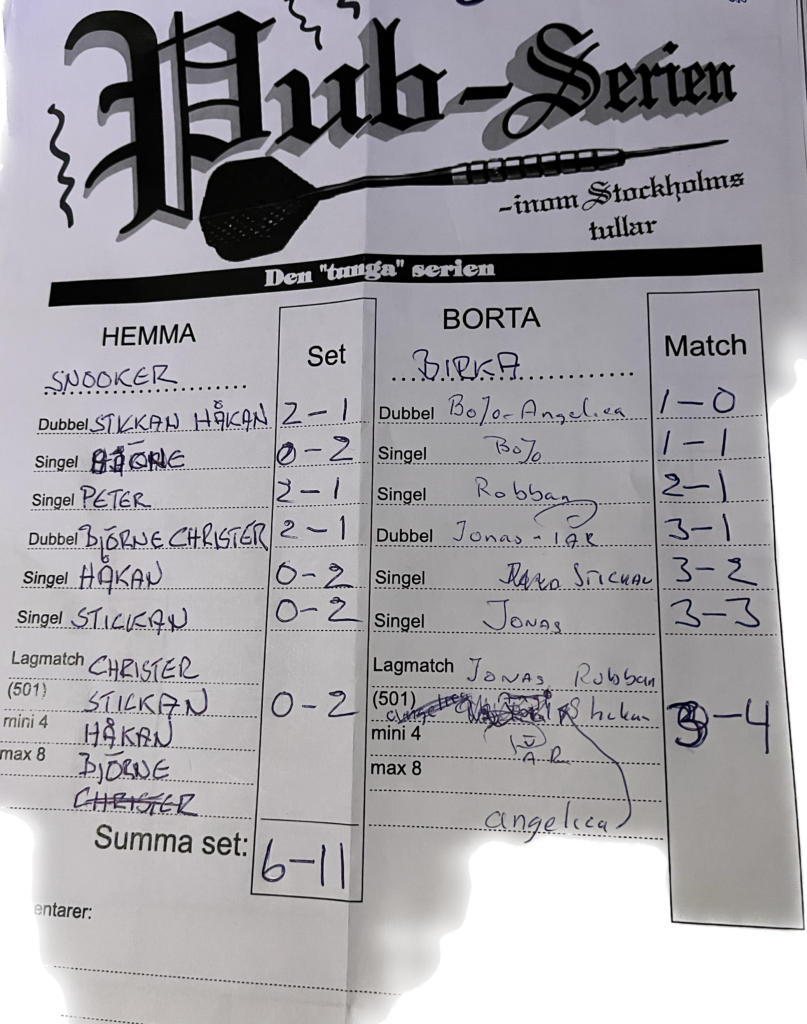 Pub-Serien
-inom Stockholms
tullar
Den "tunga" serien
HEMMA Set BORTA Match
SNOOKER BIRKA
Dubbel STICKAN HÅKAN 2-1 Dubbel BoJo-Angelica 1-0
Singel BJÖRNE 0-2 Singel BoJo 1-1
Singel PETER 2-1 Singel Robban 2-1
Dubbel BJÖRNE CHRISTER 2-1 Dubbel Jonas - 3-1
Singel HÅKAN 0-2 Singel 3-2
Singel STICKAN 0-2 Singel JONAS 3-3
Lagmatch CHRISTER Lagmatch JONAS Robban
(501) STICKAN 0-2 (501) 3-4
mini 4 HÅKAN mini 4
max 8 BJÖRNE max 8
CHRISTER angelica
Summa set: 6-11
entarer: